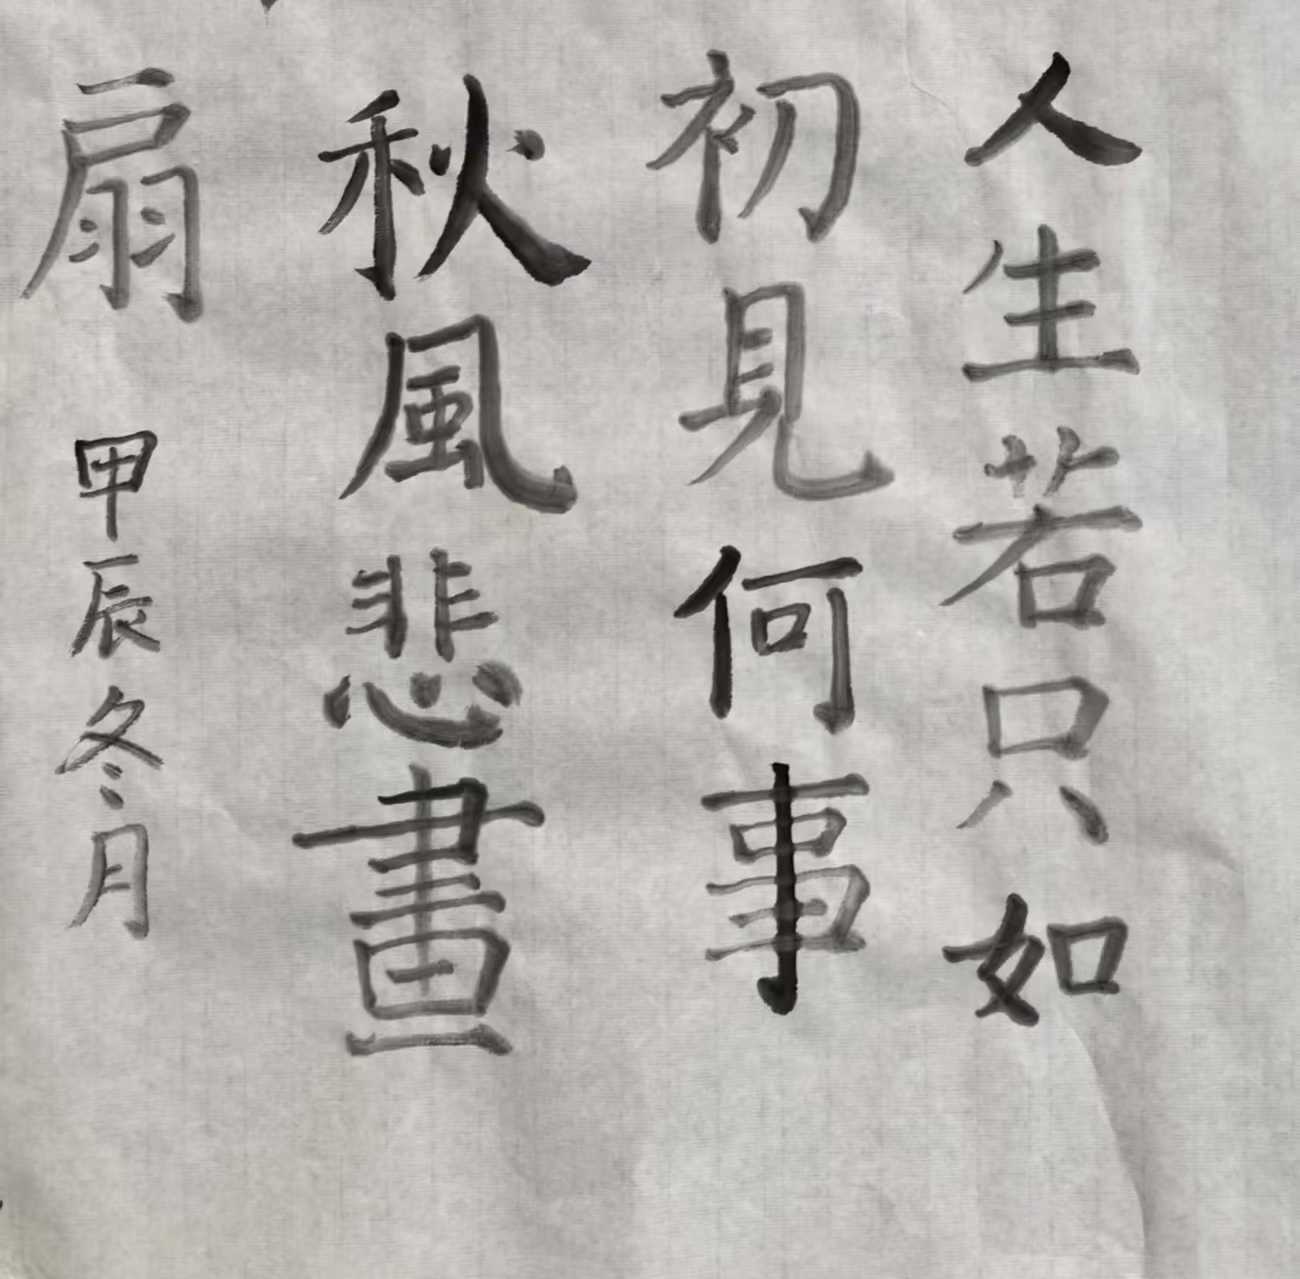 人生若只如
初見何事
秋風悲畫
扇
甲辰冬月